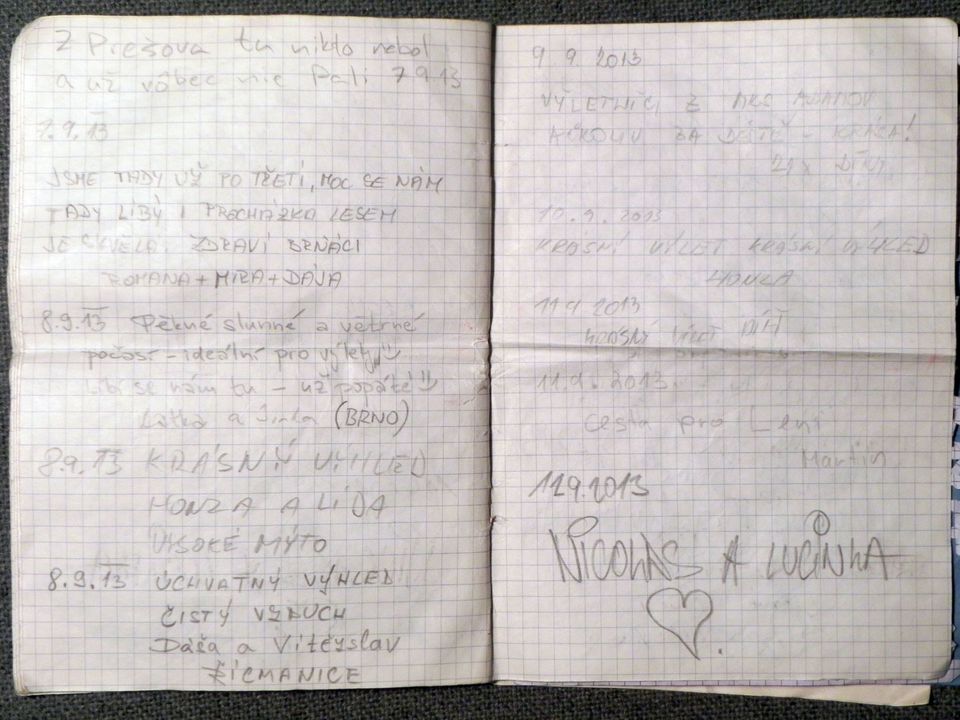 Z Prešova tu nikto nebol
a už vôbec nie Pali 7.9.13
7.9.13
JSME TADY UŽ PO TŘETÍ, MOC SE NÁM
TADY LÍBÝ I PROCHÁZKA LESEM
JE SKVĚLÁ. ZDRAVÍ BRŇÁCI
ROMANA + MÍRA + DÁJA
8.9.13 Pěkné slunné a větrné
počasí - ideální pro výlety
Líbí se nám tu - už popáté!!
a Jirka (BRNO)
8.9.13 KRÁSNÝ VÝHLED
HONZA A LÍDA
VYSOKÉ MÝTO
8.9.13 ÚCHVATNÝ VÝHLED
ČISTÝ VZDUCH
Dáša a Vítězslav
ŘÍCMANICE
9. 9. 2013
VÝLETNÍCI Z ADAMOV
AČKOLIV ZA DEŠTĚ - KRÁSA!
21x
10. 9. 2013
KRÁSNÍ VÝLET KRÁSNÍ VÝHLED
HONZA
11.9 2013
KRÁSNÝ
11.9. 2013
cesta pro Leni
Martin
11.9.2013
NICOLAS A LUCINKA